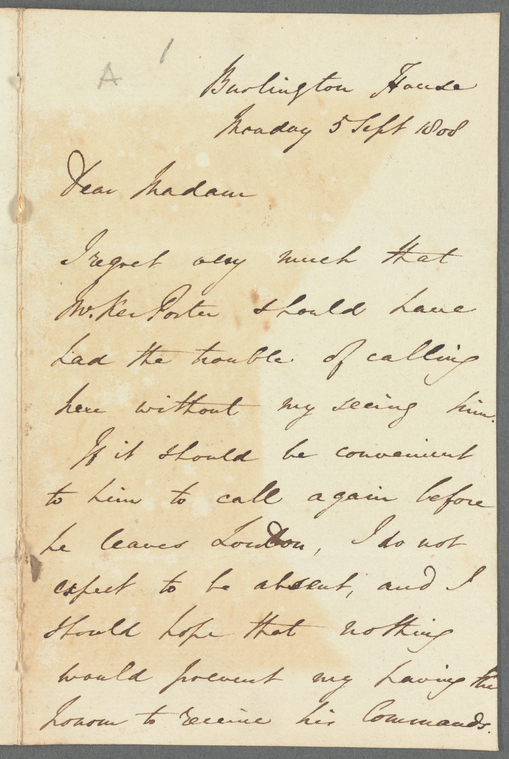 A 1
Burlington House
Monday 5 Sept 1808
Dear Madam
I regret very much that
Mr. Ker Porter should have
had the trouble of calling
here without my seeing him.
If it should be convenient
to him to call again before
he leaves London, I do not
expect to be absent, and I
should hope that nothing
would prevent my having the
honor to receive his Commands.